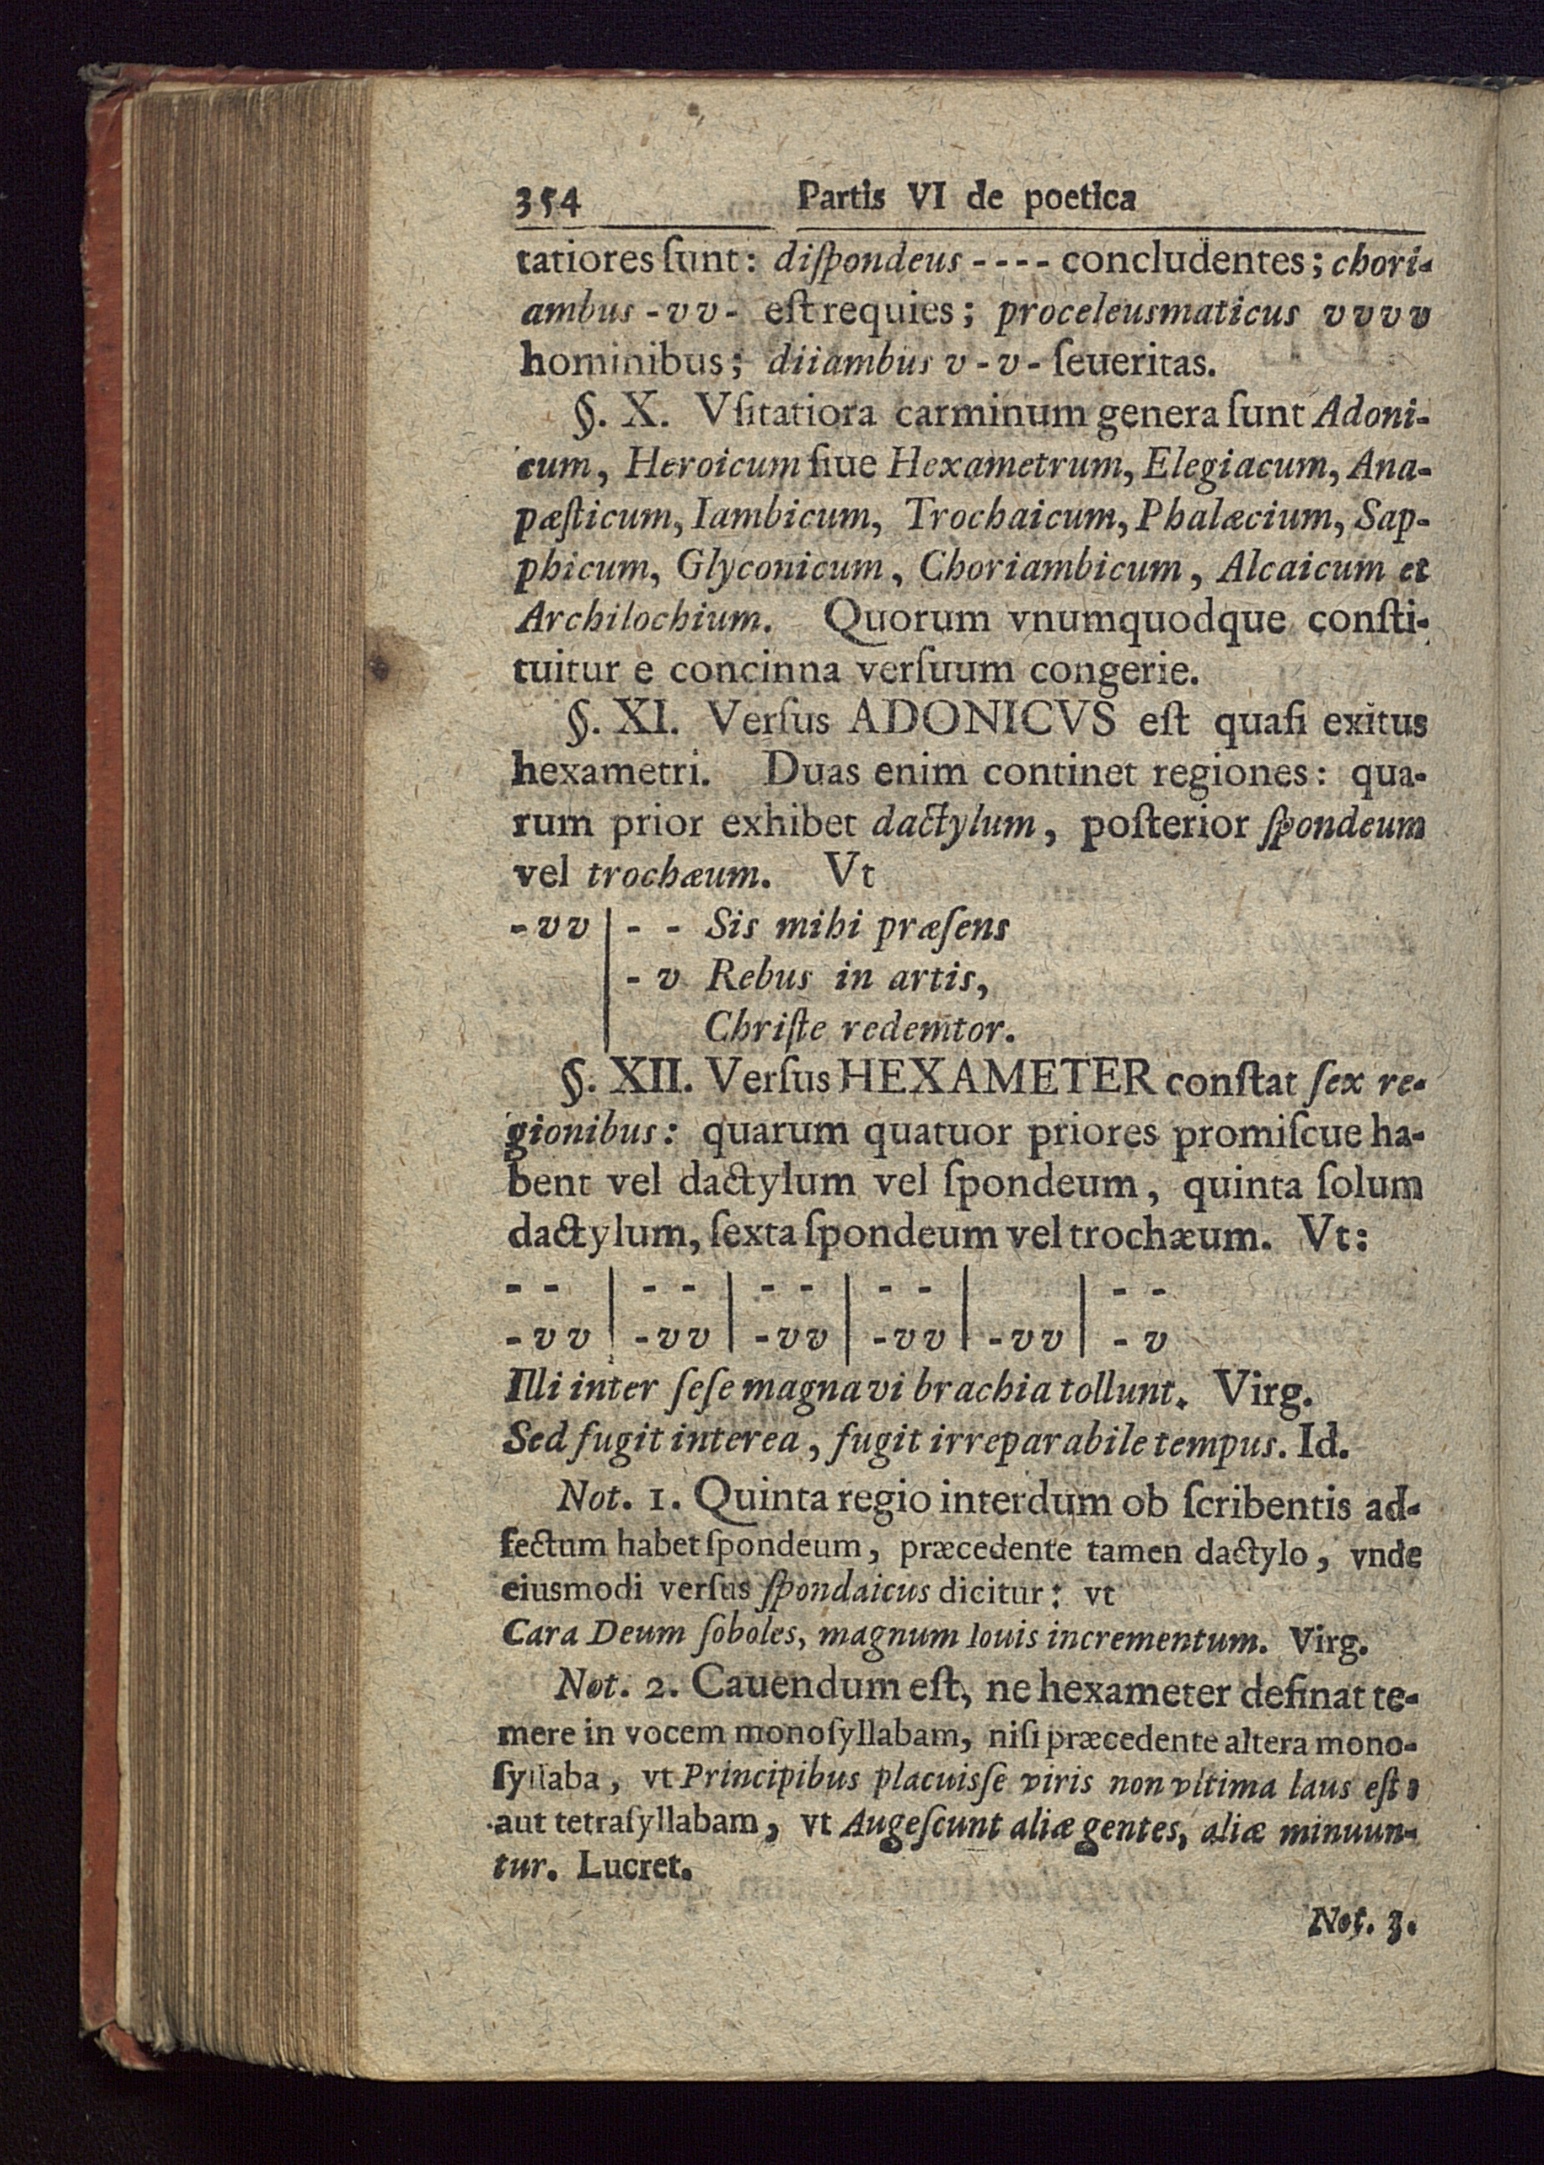 354 Partis VI de poetica
tatiores ſunt: diſpondeus - - - - concludentes; chori-
ambus - v v - eſt requies; proceleusmaticus v v v v
hominibus; diiambus v - v - ſeueritas.
§. X. Vſitatiora carminum genera ſunt Adoni-
cum, Heroicum ſiue Hexametrum, Elegiacum, Ana-
pæſticum, Iambicum, Trochaicum, Phalæcium, Sap-
phicum, Glyconicum, Choriambicum, Alcaicum et
Archilochium. Quorum vnumquodque conſti-
tuitur e concinna verſuum congerie.
§. XI. Verſus ADONICVS eſt quaſi exitus
hexametri. Duas enim continet regiones: qua-
rum prior exhibet dactylum, poſterior ſpondeum
vel trochæum. Vt
- v v | - - Sis mihi præſens
| - v Rebus in artis,
| Chriſte redemtor.
§. XII. Verſus HEXAMETER conſtat ſex re-
gionibus: quarum quatuor priores promiſcue ha-
bent vel dactylum vel ſpondeum, quinta ſolum
dactylum, ſexta ſpondeum vel trochæum. Vt:
- - | - - | - - | - - | | - -
- v v | - v v | - v v | - v v | - v v | - v
Illi inter ſeſe magna vi brachia tollunt. Virg.
Sed fugit interea, fugit irreparabile tempus. Id.
Not. 1. Quinta regio interdum ob ſcribentis ad-
fectum habet ſpondeum, præcedente tamen dactylo, vnde
eiusmodi verſus ſpondaicus dicitur: vt
Cara Deum ſoboles, magnum Iouis incrementum. Virg.
Not. 2. Cauendum eſt, ne hexameter deſinat te-
mere in vocem monoſyllabam, niſi præcedente altera mono-
ſyllaba, vt Principibus placuisſe viris non vltima laus eſt:
aut tetraſyllabam, vt Augeſcunt aliæ gentes, aliæ minuun-
tur. Lucret.
Not. 3.